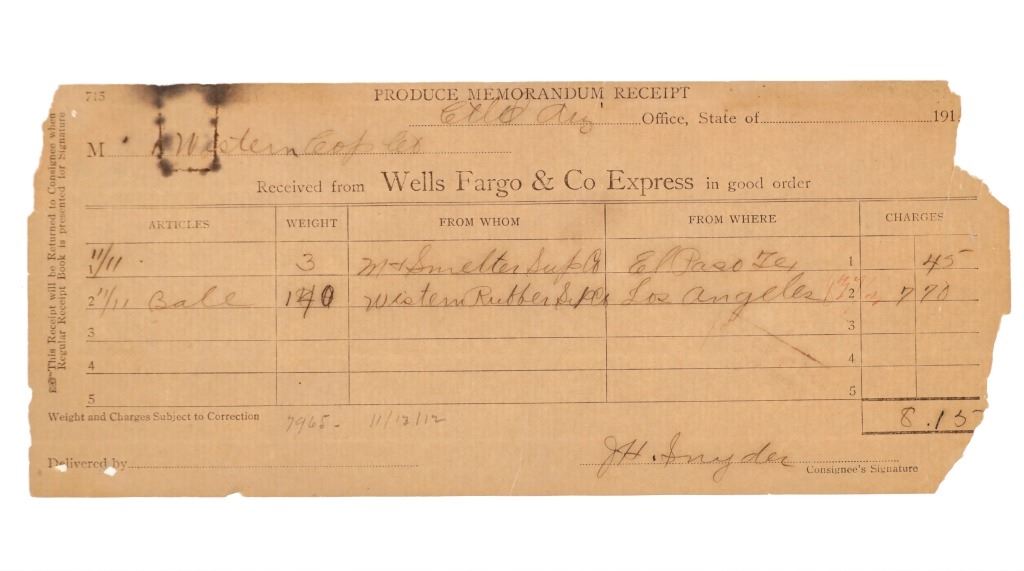 745
PRODUCE MEMORANDUM RECEIPT
Ariz Office, State of 191
M Western Cop Co
Received from Wells Fargo & Co Express in good order
ARTICLES WEIGHT FROM WHOM FROM WHERE CHARGES
1 11/11 3 M & Smelter Sup Co El Paso Tex 1 45
2 11/11 Bale 140 Western Rubber Sup Co Los Angeles 2 7 70
3 3
4 4
5 5
Weight and Charges Subject to Correction 7965- 11/12/12 8.15
J H. Snyder
Delivered by Consignee's Signature
This Receipt will be Returned to Consignee when
Regular Receipt Book is presented for Signature